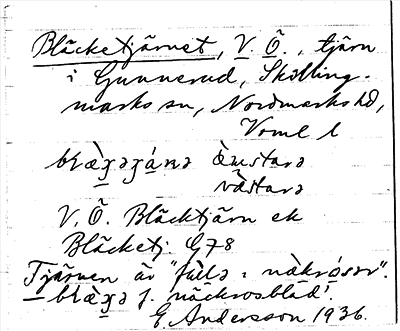 Bläcketjärnet, V. Ö., tjärn
i Gunnerud, Skilling-
marks sn, Nordmarks hd,
Vrml l
blæ̀ʒəʒá̱nə æ̀ustarə
væ̀starə
V. Ö. Bläcktjärn ek
Bläcketj. G78
Tjärnen är "fùllə a nàkrósər".
blæ̀ʒə f. näckrosblad'.
E. Andersson 1936.